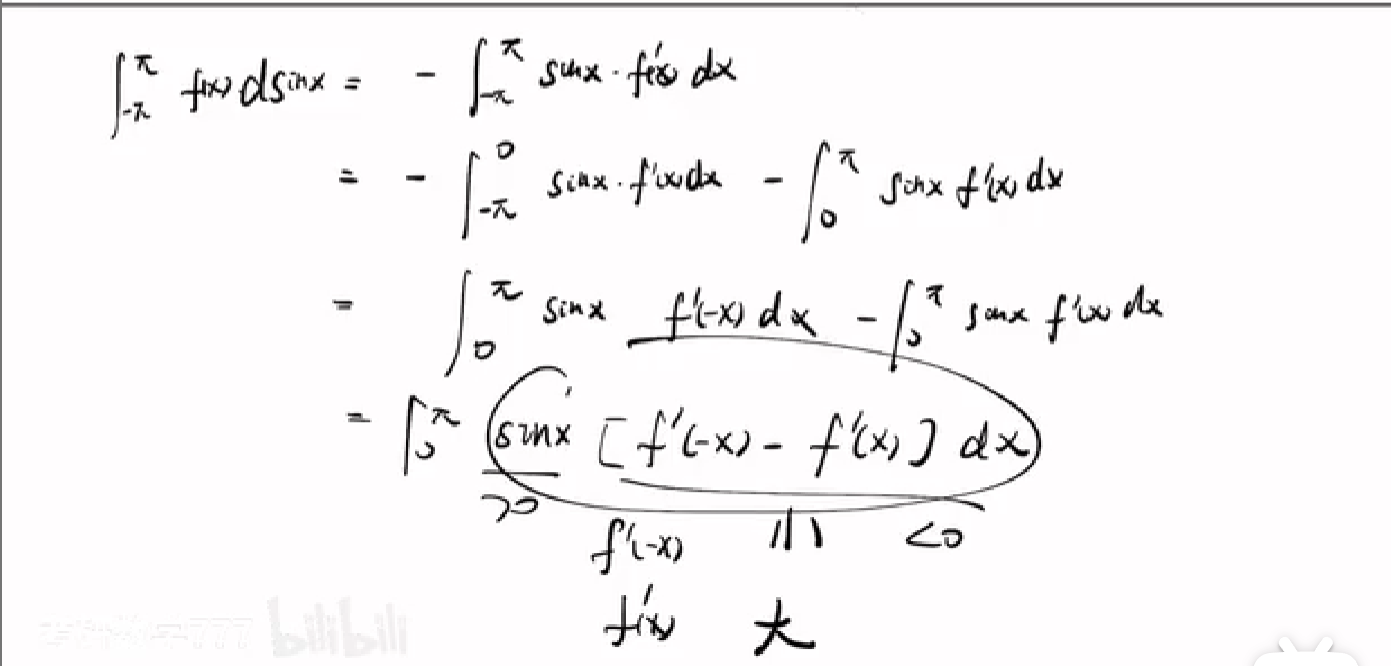 ∫_{-π}^{π} f(x) dsinx = - ∫_{-π}^{π} sinx · f'(x) dx
= - ∫_{-π}^{0} sinx · f'(x) dx - ∫_{0}^{π} sinx f'(x) dx
= ∫_{0}^{π} sinx f'(-x) dx - ∫_{0}^{π} sinx f'(x) dx
= ∫_{0}^{π} sinx [f'(-x) - f'(x)] dx
>0 <0
f'(-x) 小
f'(x) 大
bilibili